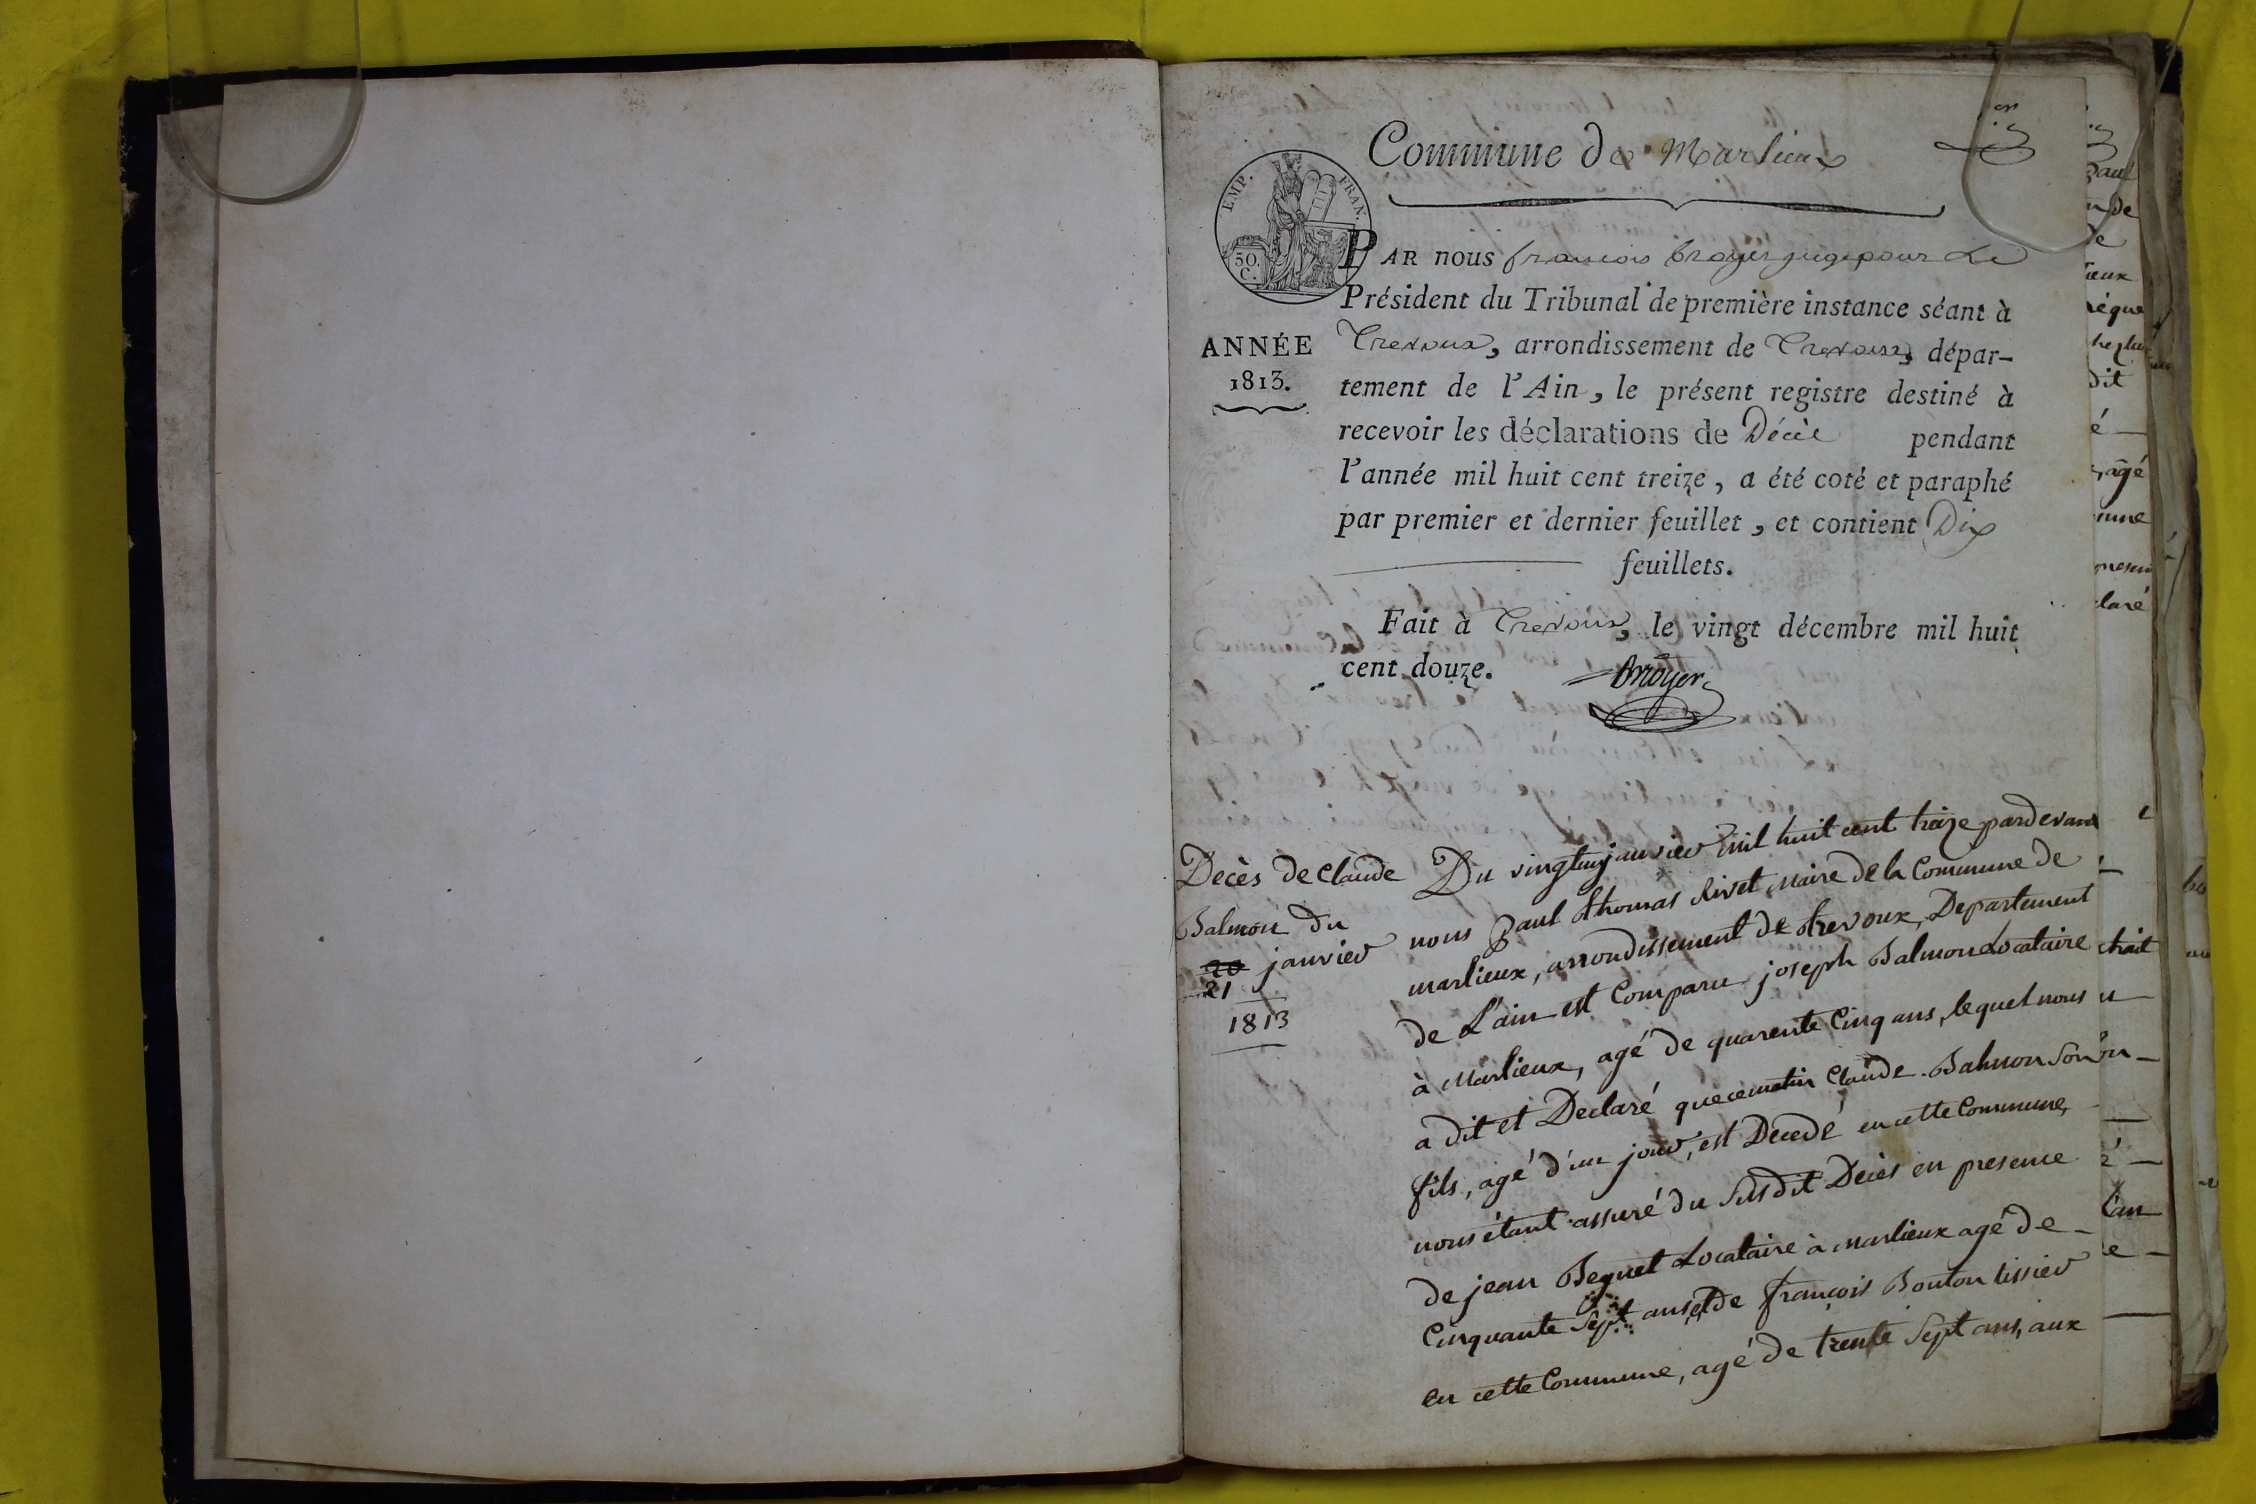 Commune de Marlieux
EMP. FRAN.
50.
C.
PAR nous francois Broyer juge pour Le
Président du Tribunal de première instance séant à
Trevoux, arrondissement de Trevoux, dépar-
tement de l'Ain, le présent registre destiné à
recevoir les déclarations de Décès pendant
l'année mil huit cent treize, a été coté et paraphé
par premier et dernier feuillet, et contient Dix
feuillets.
Fait à Trevoux, le vingt décembre mil huit
cent douze.
Broyer
ANNÉE
1813.
Decès de Claude
Balmon du
20 janvier
21
1813
Du vingt un janvier mil huit cent treize pardevant
nous paul thomas Rivet Maire de la Commune de
marlieux, arrondissement de trevoux, Departement
de L'ain est Comparu joseph Balmon Locataire
à Marlieux, agé de quarente Cinq ans, lequel nous
a dit et Declaré que ce matin Claude Balmon Son
fils, agé d'un jour, est Decedé en cette Commune,
nous étant assuré du Susdit Decès en presence
de jean Bequet Locataire à Marlieux agé de
Cinquante Sept ans, et de françois Bouton tissier
en cette Commune, agé de trente Sept ans, aux